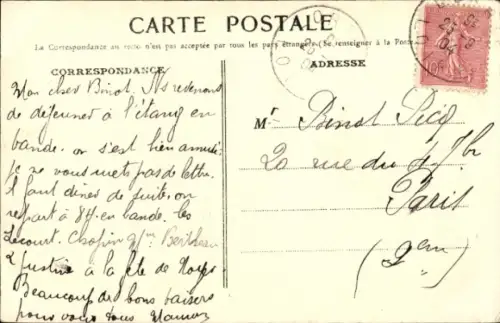 CARTE POSTALE
La Correspondance au recto n'est pas acceptée par tous les pays étrangers (Se renseigner à la Poste)
CORRESPONDANCE
Mon cher Binot. Ns revenons
de déjeuner à l'étang en
bande. on s'est bien amusé
je ne vous mets pas de lettre.
il faut dîner de suite. on
repart à 8h en bande. les
Lecourt. Chopin Mme
& Justine à la fête de
Beaucoup de bons baisers
pour vous tous
ADRESSE
Mr Binot
20 rue du 4 7bre
Paris
(2em)